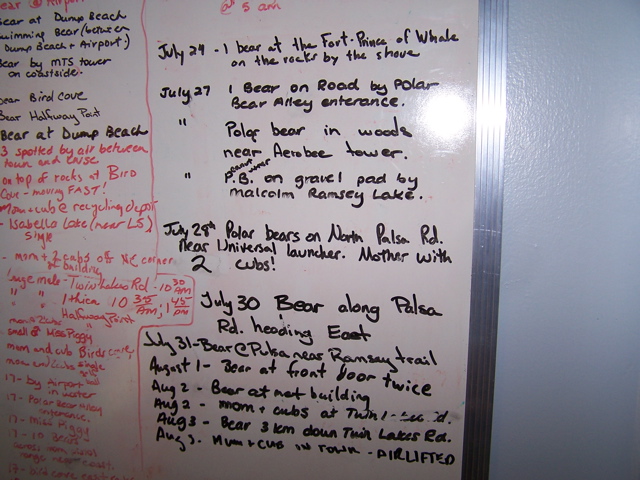 ear @ Airport
ear at Dump Beach
wimming Bear (between
Dump Beach + Airport)
Bear by MTS tower
on coastside.
ear Bird Cove
ear Halfway Point
Bear at Dump Beach
3 spotted by air between
town and
on top of rocks at Bird
Cove - moving FAST!
Mom + cub @ recycling depot
- Isabella Lake (near LS)
single
- mom + 2 cubs off NE corner
building
huge male - Twin Lakes Rd - 10 30 AM
" " 1 thien 10 35 AM, 1 45 PM
Halfway Point
mom + 2 cubs "
small @ Miss Piggy
mom and cub Birds cove,
mom and cubs single
17 - by Airport
in water
17 - Polar Bear Alley
enterence.
17 - Miss Piggy
17 - 10 Bears
across from
range near coast.
17 - bird cove
@ 5 am
July 24 - 1 bear at the Fort-Prince of Whale
on the rocks by the shove
July 27 1 Bear on Road by Polar
Bear Alley enterance.
" Polar bear in woods
near Aerobee tower.
" P.B. on gravel pad by
malcolm Ramsey Lake.
July 28th Polar bears on North Palsa Rd.
near Universal launcher. Mother with
2 cubs!
July 30 Bear along Palsa
Rd. heading East
July 31 - Bear @ Pulsa near Ramsay trail
August 1 - Bear at front door twice
Aug 2 - Bear at met building
Aug 2 - mom + cubs at Twin
Aug 3 - Bear 3 km down Twin Lakes Rd.
Aug 3. Mum + cub in town - AIRLIFTED